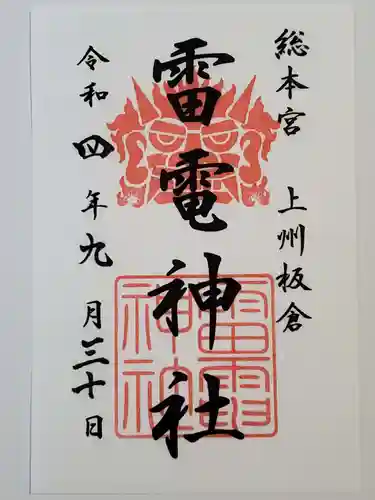 総本宮 上州板倉
雷電神社
令和四年九月三十日
雷電神社